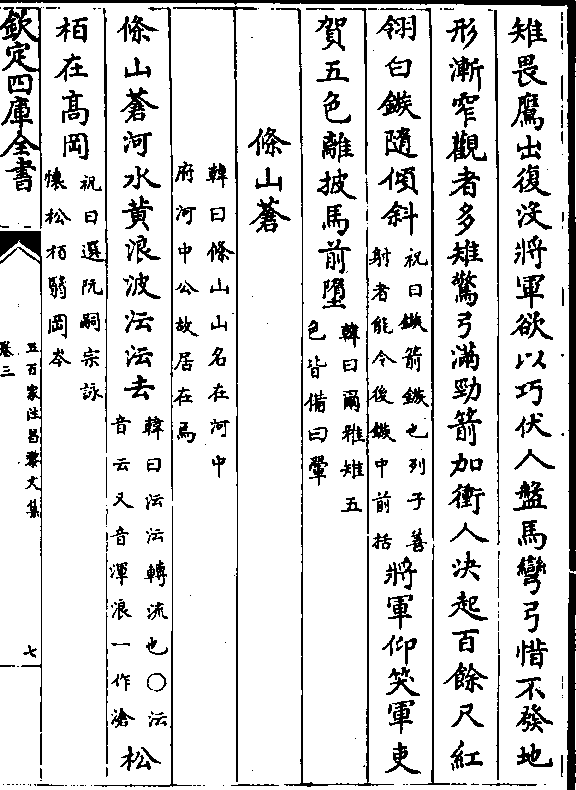 雉畏鷹出復没將軍欲以巧伏人盤馬彎弓惜不發地
形漸窄觀者多雉驚弓滿勁箭加衝人决起百餘尺紅
翎白鏃隨傾斜祝曰鏃箭鏃也列子善射者能令後鏃中前括將軍仰笑軍吏
賀五色離披馬前墮韓曰爾雅雉五色皆備曰翬
條山蒼
韓曰條山山名在河中府河中公故居在焉
條山蒼河水黄浪波沄沄去韓曰沄沄轉流也○沄音云又音渾浪一作滄松
栢在髙岡祝曰選阮嗣宗詠懷松栢翳岡岑
欽定四庫全書
五百家注昌黎文集
卷三
七